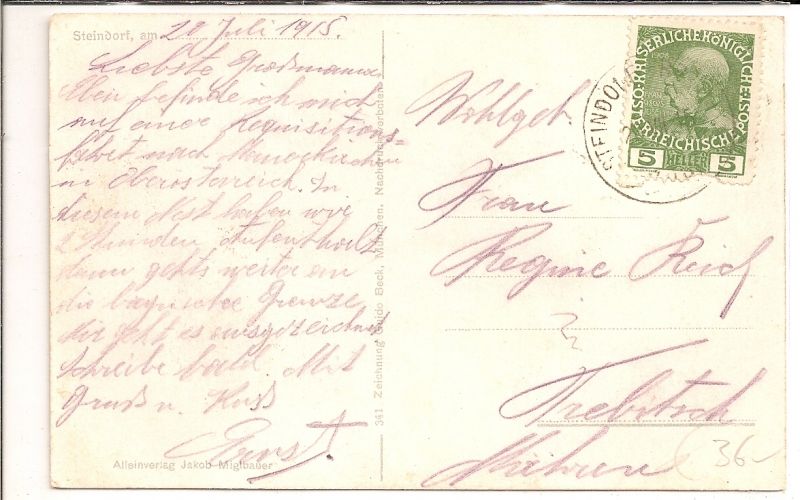 Steindorf, am 20 Juli 1915.
Liebste Großmama
Eben befinde ich mich
auf einer Requisitions-
fahrt nach
in Oberösterreich. In
diesem Nest haben wir
2 Stunden Aufenthalt
dann gehts weiter an
die bayrische Grenze.
Mir geht es ausgezeichnet
schreibe bald. Mit
Gruß u. Kuß
Alleinverlag Jakob Miglbauer
341 Zeichnung Guido Beck, München. Nachdruck verboten.
Wohlgeb
Frau
Regine Reich
Trebitsch
Mähren
36-
STEINDORF
KAISERLICHE KÖNIGLICHE
ÖSTERREICHISCHE POST
5 HELLER 5